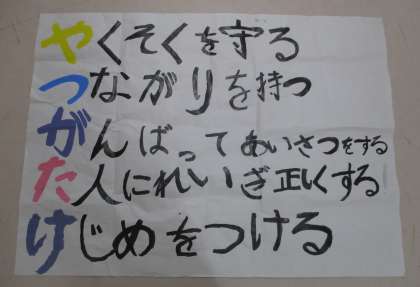 やくそくを守る
つながりを持つ
がんばってあいさつをする
た人にれいぎ正しくする
けじめをつける